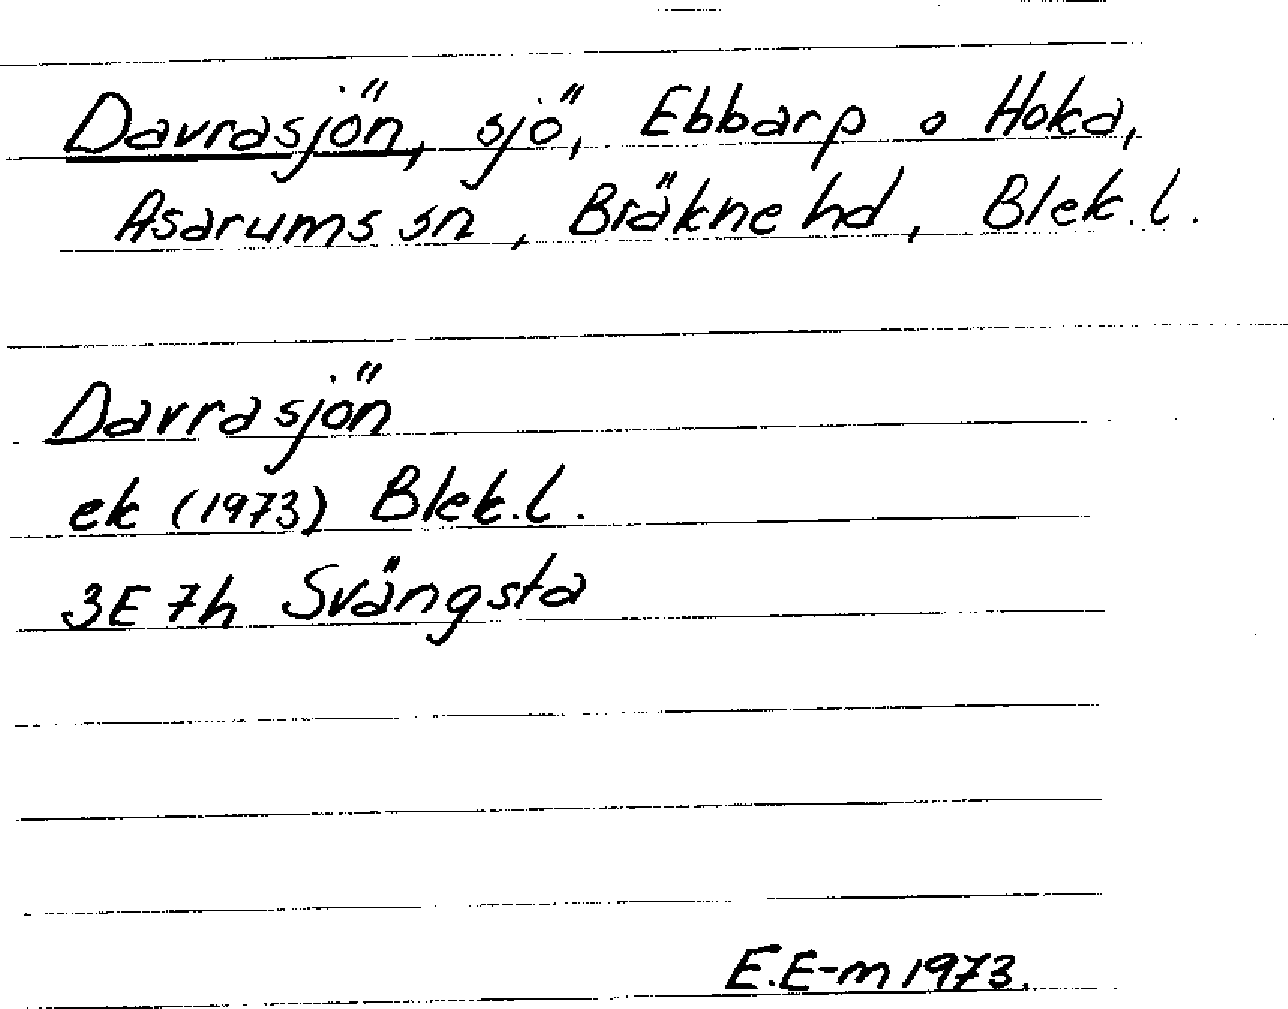 Davrasjön, sjö, Ebbarp o Hoka,
Asarums sn, Bräkne hd, Blek. l.
Davrasjön
ek (1973) Blek. l.
3E 7h Svängsta
E.E-m 1973.